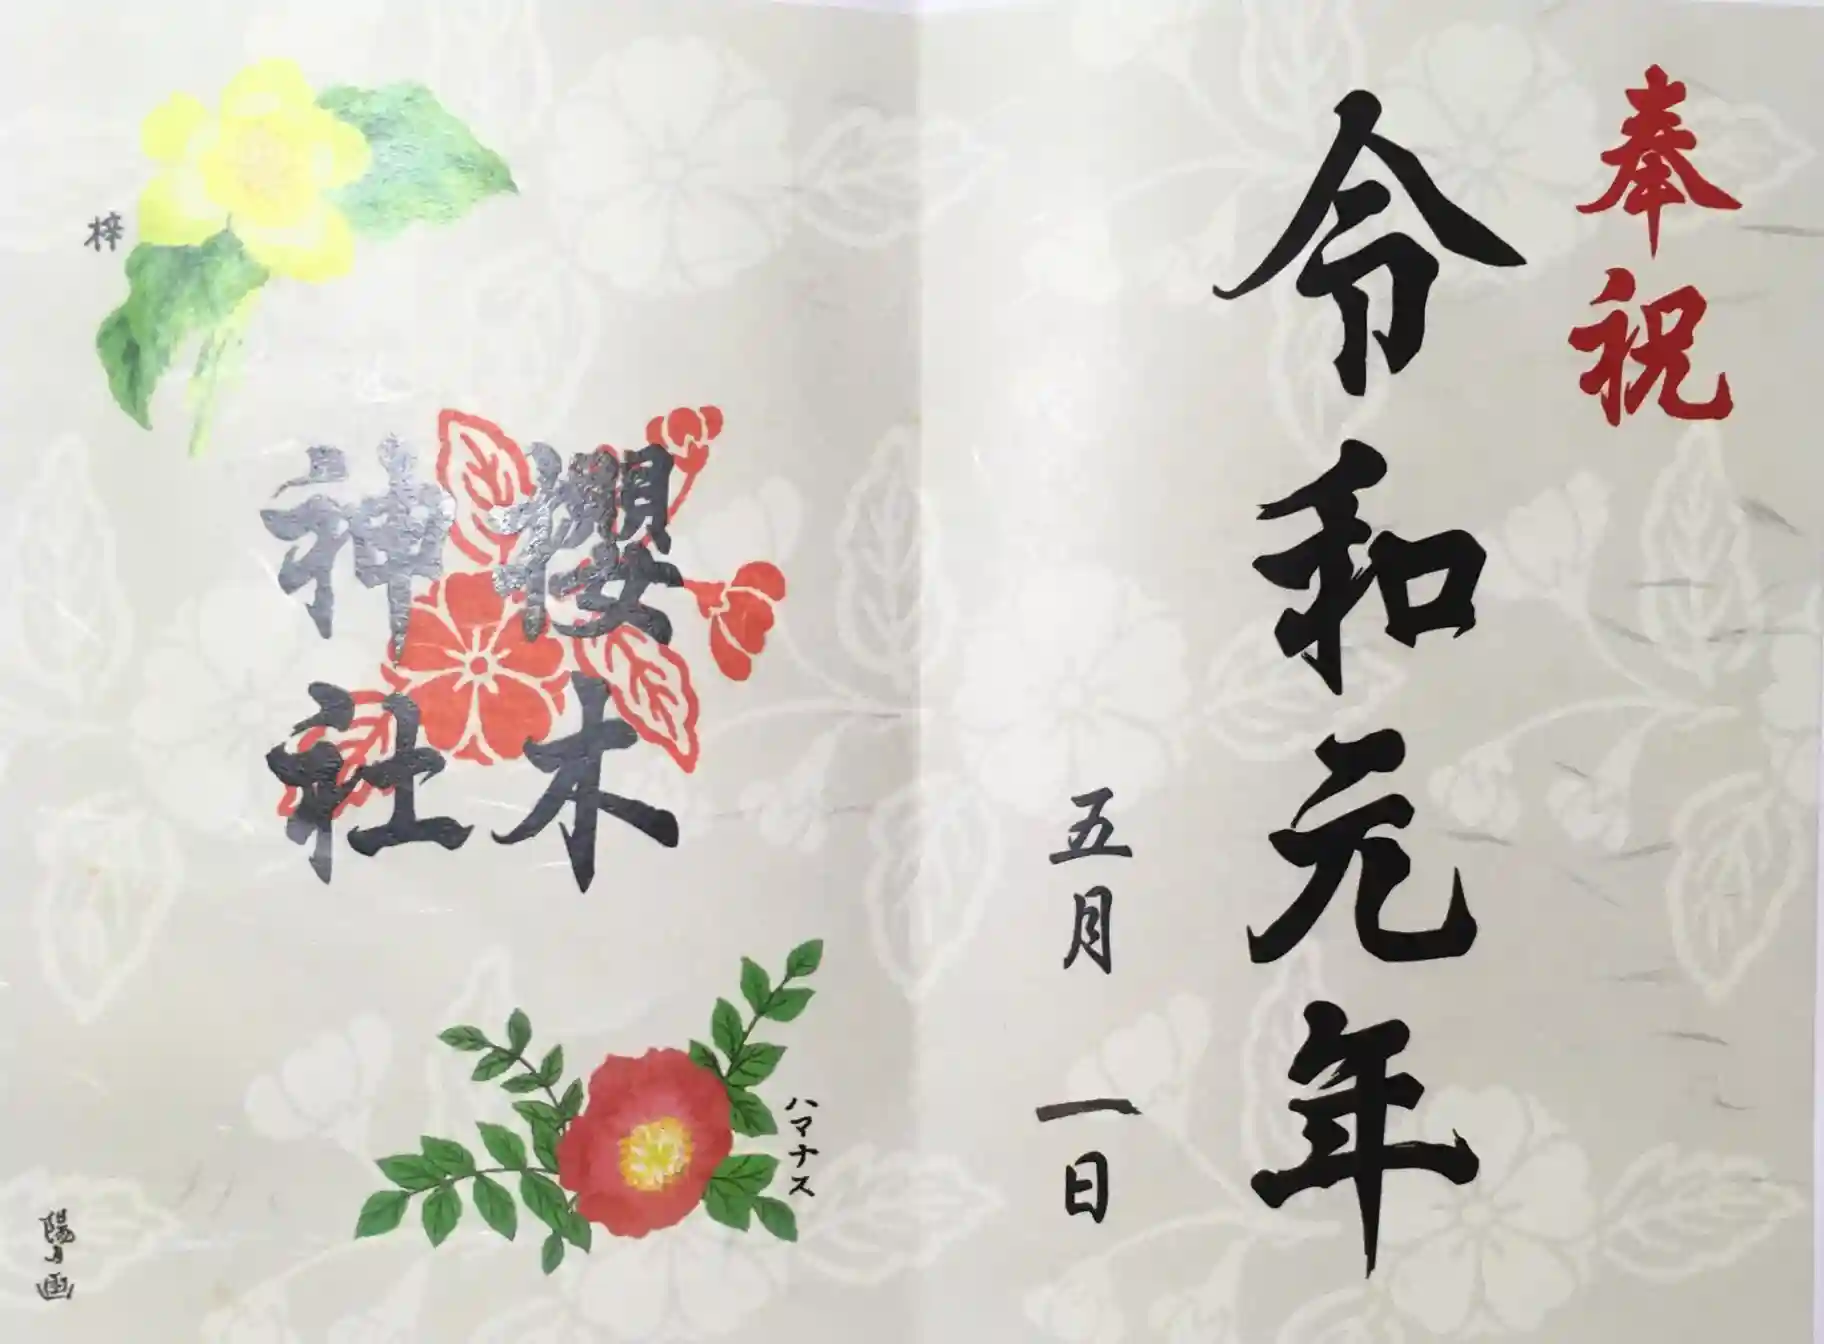 奉祝
令和元年
五月一日
櫻木
神社
梓
ハマナス
陽月画